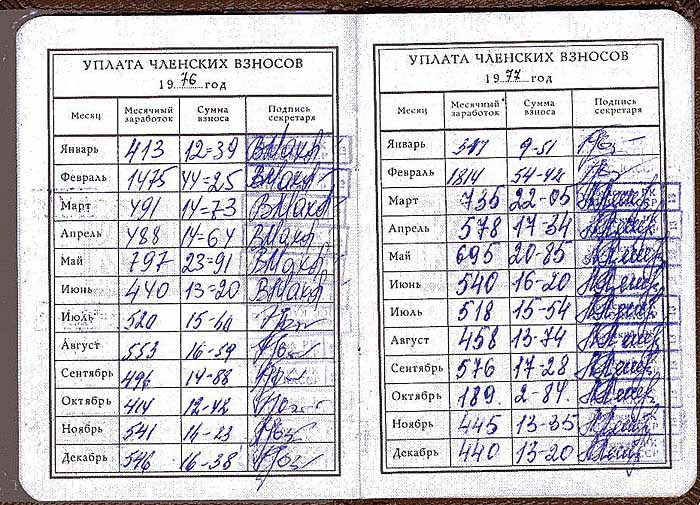 УПЛАТА ЧЛЕНСКИХ ВЗНОСОВ
1976 год
Месяц Месячный заработок Сумма взноса Подпись секретаря
Январь 413 12=39
Февраль 1475 44=25
Март 491 14=73
Апрель 488 14=64
Май 797 23=91
Июнь 440 13=20
Июль 520 15-60
Август 553 16-59
Сентябрь 496 14-88
Октябрь 414 12-42
Ноябрь 541 16-23
Декабрь 546 16-38
УПЛАТА ЧЛЕНСКИХ ВЗНОСОВ
1977 год
Месяц Месячный заработок Сумма взноса Подпись секретаря
Январь 317 9-51
Февраль 1814 54-42
Март 735 22-05
Апрель 578 17-34
Май 695 20-85
Июнь 540 16-20
Июль 518 15-54
Август 458 13-74
Сентябрь 576 17-28
Октябрь 189. 2-84.
Ноябрь 445 13-35
Декабрь 440 13-20